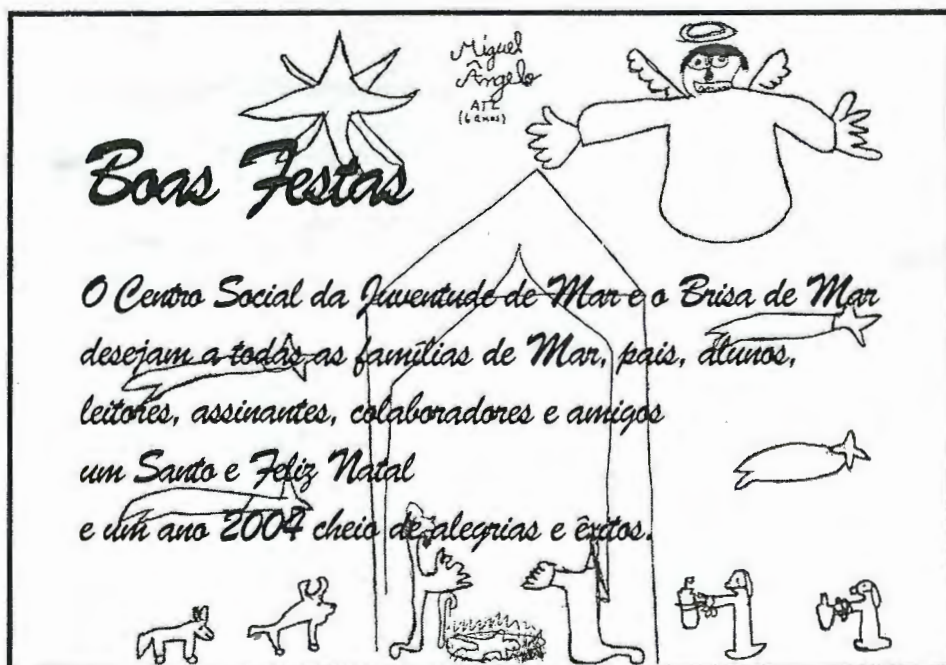 Miguel
Ângelo
ATL
(6 anos)
Boas Festas
O Centro Social da Juventude de Mar e o Brisa de Mar
desejam a todas as famílias de Mar, pais, alunos,
leitores, assinantes, colaboradores e amigos
um Santo e Feliz Natal
e um ano 2004 cheio de alegrias e êxitos.